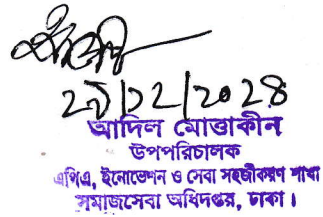 ২৯/১২/২০২৪
আদিল মোত্তাকীন
উপপরিচালক
এপিএ, ইনোভেশন ও সেবা সহজীকরণ শাখা
সমাজসেবা অধিদপ্তর, ঢাকা।